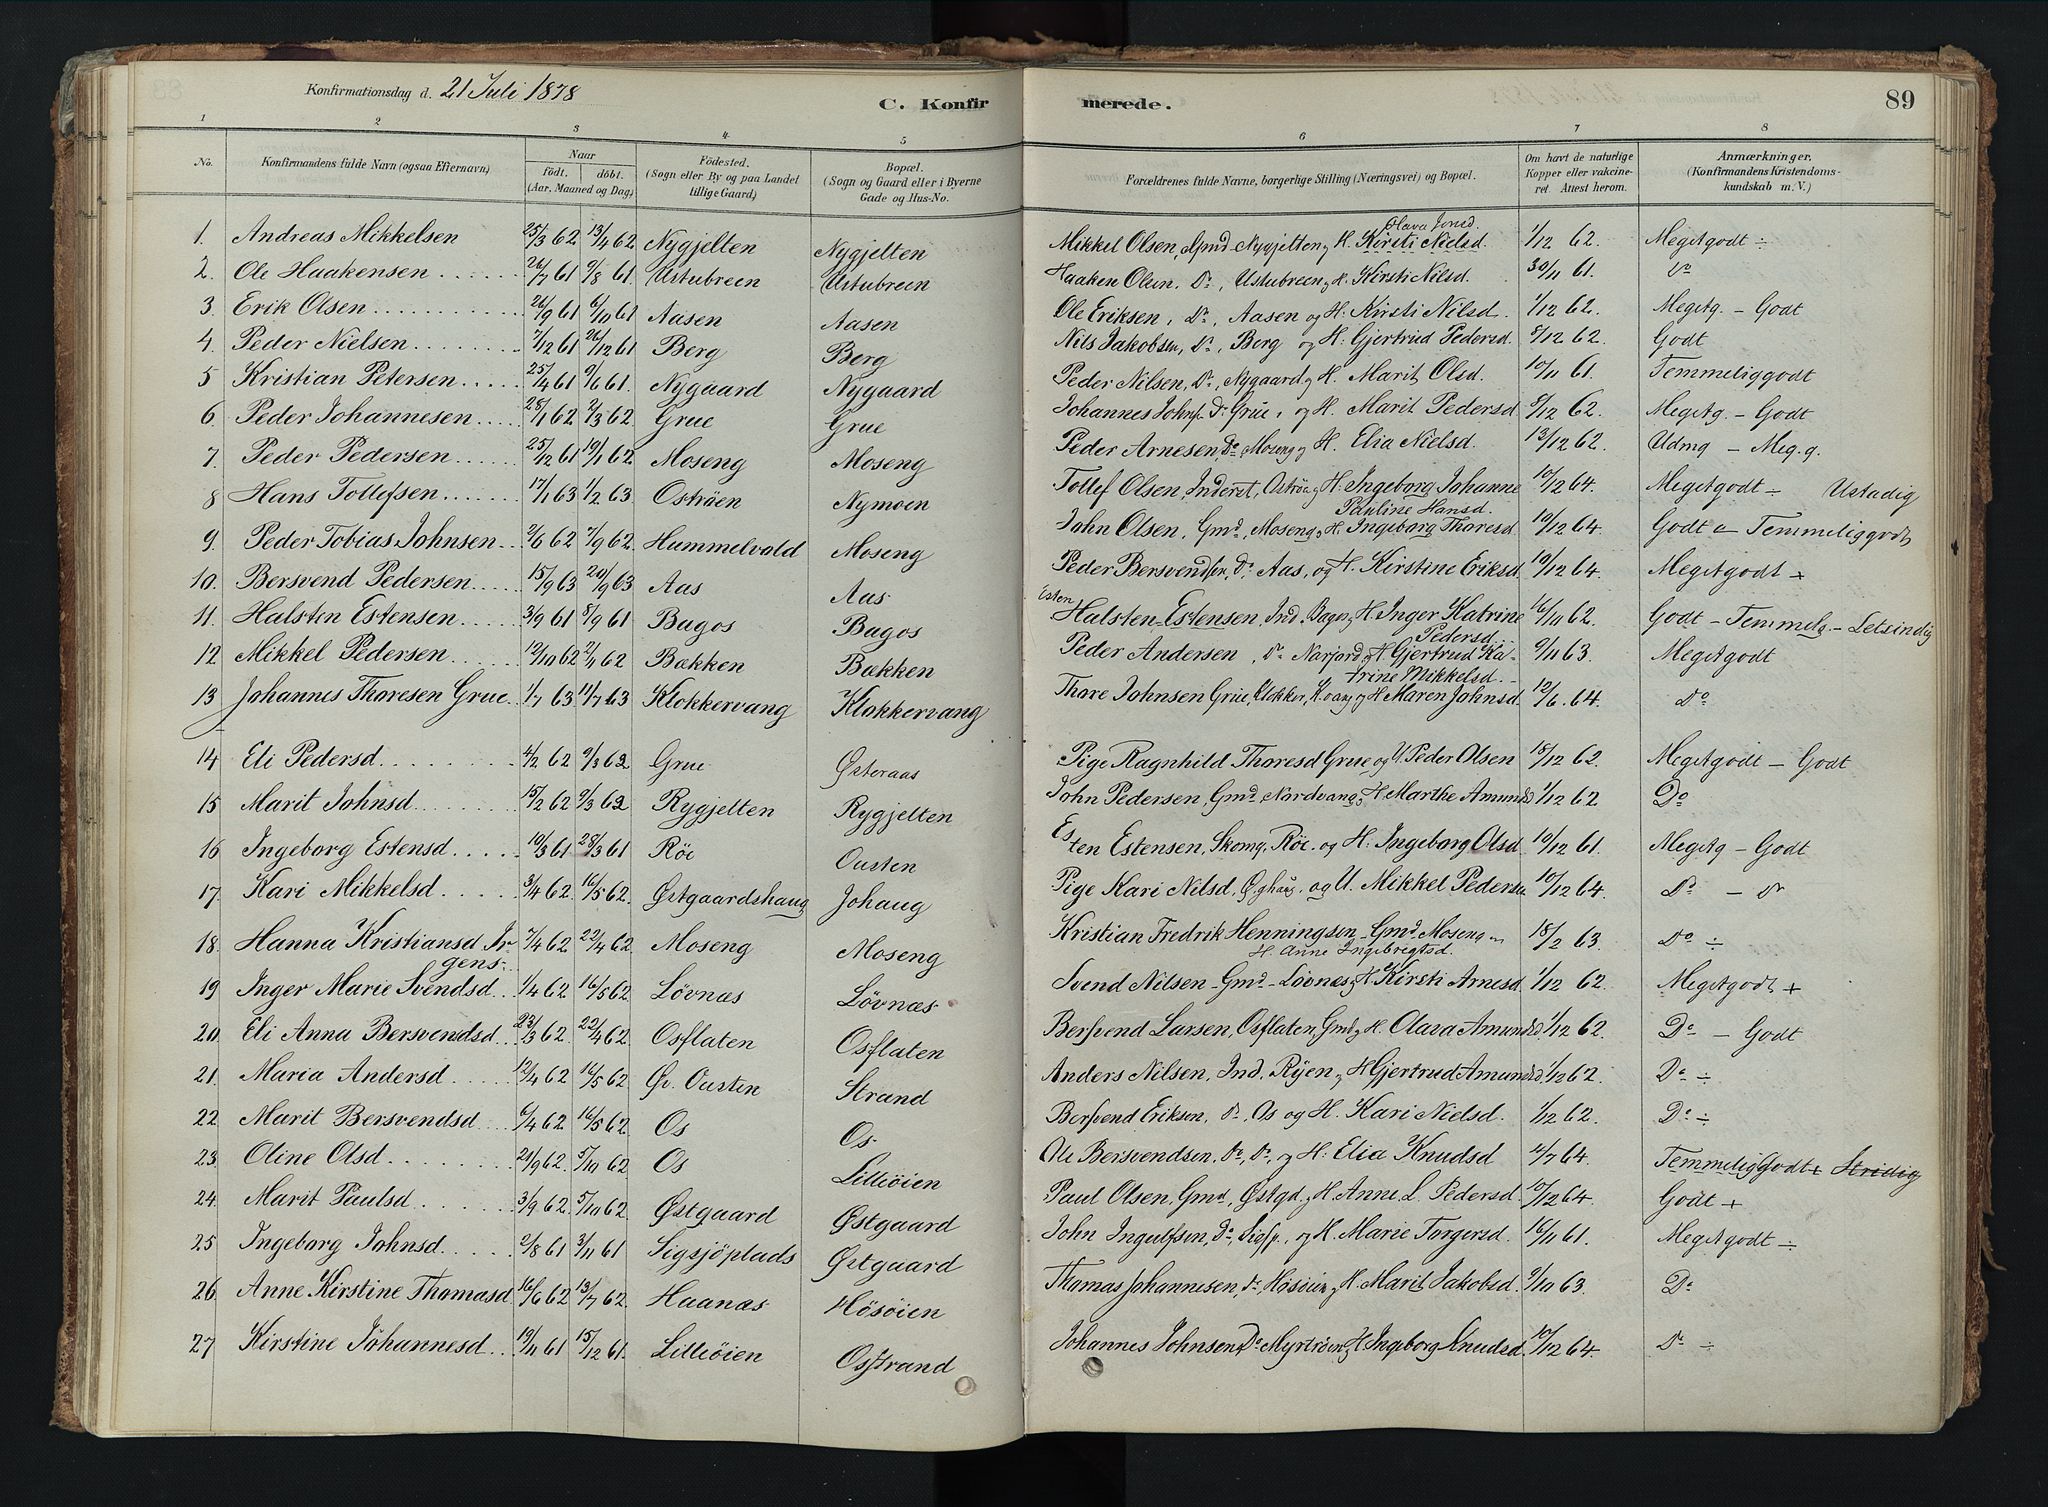 Konfirmationsdag d. 21 Juli 1878
C. Konfirmerede. 89
1 2 3 4 5 6 7 8
No. Konfirmandens fulde Navn (ogsaa Efternavn) Naar födt. döbt. (Aar, Maaned og Dag) Födested. (Sogn eller By og paa Landet tillige Gaard) Bopæl. (Sogn og Gaard eller i Byerne Gade og Hus-No. Forældrenes fulde Navne, borgerlige Stilling (Næringsvei) og Bopæl. Om havt de naturlige Kopper eller vakcineret. Anest herom. Anmærkninger. (Konfirmandens Kristendomskundskab m. V.)
1. Andreas Mikkelsen 25/3 62 13/4 62 Nygjelten Nygjelten Mikkel Olsen, Gmd Nygjelten og H. Kirsti Nielsd. Olava Jonsd. 1/12 62. Megetgodt ÷
2. Ole Haakensen 26/7 61 9/8 61 Ustubreen Ustubreen Haaken Olsen, Do, Ustubreen og H. Kirsti Nilsd. 30/11 61. Do
3. Erik Olsen 26/9 61 6/10 61 Aasen Aasen Ole Eriksen, Do, Aasen og H. Kirsti Nilsd. 1/12 62. Megetg. – Godt
4. Peder Nielsen 7/12 61 26/12 61 Berg Berg Nils Jakobsen, Do, Berg og H. Gjertrud Pedersd. 8/12 62. Godt
5 Kristian Petersen 25/4 61 9/6 61. Nygaard Nygaard Peder Nilsen, Do, Nygaard og H. Marit Olsd. 10/11 61. Temmeliggodt
6. Peder Johannesen 28/1 62 2/3 62. Grue Grue Johannes Johns. Do Grue, og H. Marit Pedersd 8/12 62. Megetg. – Godt
7. Peder Pedersen 25/12 61 19/1 62 Moseng Moseng Peder Arnesen, Do, Moseng og H. Elia Nielsd. 13/12 62. Udmg – Meg. g.
8 Hans Tollefsen 17/1 63 1/2 63. Oströen Nymoen Tollef Olsen, Inderst, Oströen og H. Ingeborg Johanne Pauline Hansd. 10/12 64. Megetgodt ÷ Ustadig
9. Peder Tobias Johnsen 2/6 62 7/9 62. Hummelvold Moseng John Olsen, Gmd, Moseng og H. Ingeborg Thoresd. 10/12 64. Godt – Temmeliggodt
10. Bersvend Pedersen 15/9 63 20/9 63 Aas Aas Peder Bersvendsen, Do Aas, og H. Kirstine Eriksd. 10/12 64. Megetgodt +
11. Halsten Estensen 3/9 61 8/9 61 Bagos Bagos Esten Halsten Estensen, Ind. Bagos og H. Inger Katrine Pedersd. 16/10 62. Godt – Temmelg. – Letsindig
12 Mikkel Pedersen 12/10 62 2/11 62 Bækken Bækken Peder Andersen, Do Narjord og H. Gjertrud Katrine Mikkelsd. 9/11 63. Megetgodt
13 Johannes Thoresen Grue 1/7 63 11/7 63 Klokkervang Klokkervang Thore Johnsen Grue, Klokker, K.vang og H. Maren Johnsd. 12/6. 64. Do
14 Eli Pedersd 4/2 62 9/3 62 Grue Østeraas Pige Ragnhild Thoresd Grue og U. Peder Olsen 18/12 62. Megetgodt – Godt
15 Marit Johnsd 15/2 62 9/3 62 Rygjelten Rygjelten John Pedersen, Gmd, Nordvang, og H. Marthe Amundsd 1/12 62 Do
16 Ingeborg Estensd 10/3 61 28/3 61 Röe Ousten Esten Estensen, Skomg. Röe. og H. Ingeborg Olsd. 19/12 61. Megetg – Godt
17. Kari Mikkelsd 3/4 62. 16/5 62. Østgaardshaug Johaug Pige Kari Nilsd, Øghaug, og U. Mikkel Pedersen 10/12 64. Do – Do
18. Hanna Kristiansd Irgens 7/4 62 22/4 62 Moseng Moseng Kristian Fredrik Henningsen – Gmd Moseng og H. Anne Ingebregtsd. 18/2 63. Do ÷
19 Inger Marie Svendsd 1/4 62 16/5 62 Lövnæs Løvnæs Svend Nilsen – Gmd – Lövnæs og H. Kirsti Arnesd 1/12 62. Megetgodt +
20. Eli Anna Bersvendsd 23/3 62. 22/4 62. Osflaten Osflaten Bersvend Larsen, Osflaten, Gmd og H. Olava Amundsd 1/12 62. Do – Godt
21. Maria Andersd 12/4 62 16/5 62 Øv. Ousten Strand Anders Nilsen, Ind. Ryen og H. Gjertrud Amundsd. 1/12 62. Do ÷
22 Marit Bersvendsd 6/4 62 16/5 62 Os Os Bersvend Eriksen, Do, Os og H. Kari Nielsd. 1/12 62. Do ÷
23. Oline Olsd 21/9 62. 5/10 62 Os Lilleöien Ole Bersvendsen, Do, Do, og H. Elia Knudsd 12/7 64. Temmeliggodt ÷ Stridig
24. Marit Paulsd 3/9 62 5/10 62. Østgaard Østgaard Paul Olsen, Gmd, Østgd, og H. Anne L. Pedersd. 10/12 64. Godt +
25 Ingeborg Johnsd 2/8 61 3/11 61 Sigsjöplads Østgaard John Ingulfsen, Do, Sigsj., og H. Marie Torgersd. 16/11 61. Megetgodt ÷
26. Anne Kirstine Thomasd 16/6 62 13/7 62. Haanæs Hösöien Thomas Johannesen, Do, Hösöien og H. Marit Jakobsd. 9/10 63. Do
27 Kirstine Johannesd 19/11 61 15/12 61. Lilleöien Osstrand Johannes Johnsen, Do Myrtröen og H. Ingeborg Knudsd. 10/12 64. Do ÷